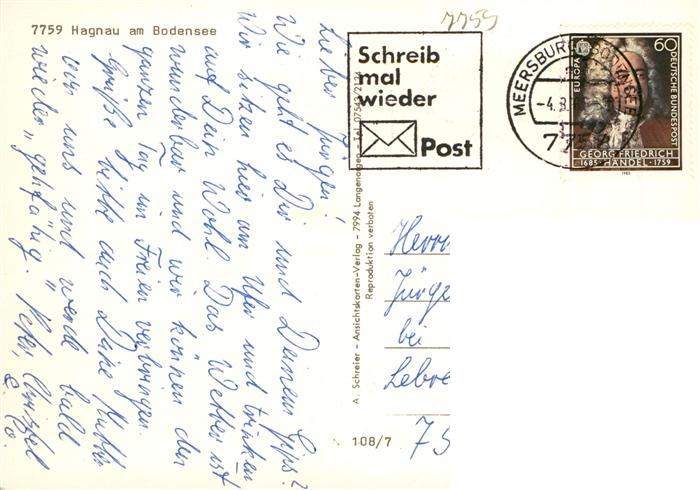 7759 Hagnau am Bodensee
7759
Schreib
mal
wieder
Post
MEERSBURG, BODENSEE
-4.8.
775
EUROPA
60
DEUTSCHE BUNDESPOST
GEORG FRIEDRICH
1685 · HÄNDEL · 1759
1985
Lieber Jürgen!
Wie geht es Dir und Deinem Gips?
Wir sitzen hier am Ufer und trinken
auf Dein Wohl. Das Wetter ist
wunderbar und wir können den
ganzen Tag im Freien verbringen.
Grüße bitte auch Deine Mutter
von uns und werde bald
wieder "gehfähig".
Peter, Christel
& Co.
A. Schreier - Ansichtskarten-Verlag - 7994 Langenargen - Tel. 07543/2124
Reproduktion verboten
Herrn
Jürge
bei
Lebre
75
108/7